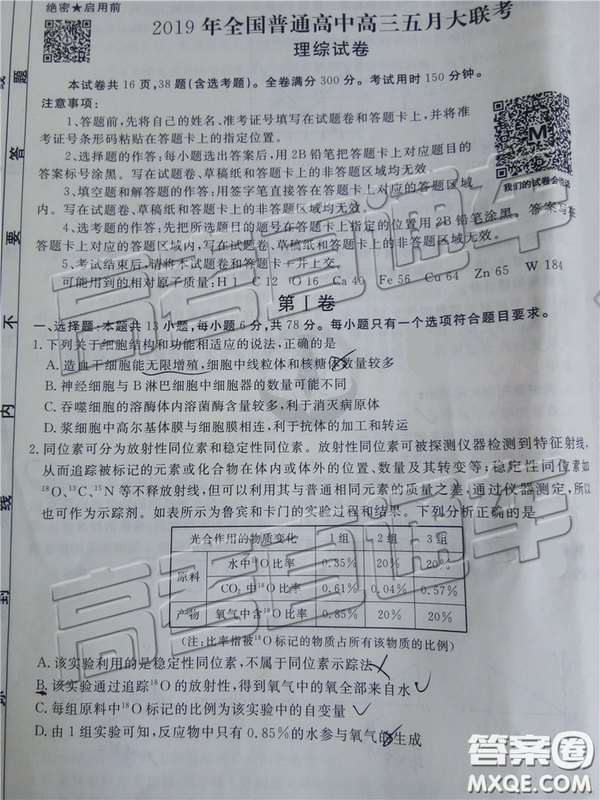 绝密★启用前
2019年全国普通高中高三五月大联考
理综试卷
本试卷共16页,38题(含选考题)。全卷满分300分。考试用时150分钟。
注意事项:
1、答题前,先将自己的姓名、准考证号填写在试题卷和答题卡上,并将准
考证号条形码粘贴在答题卡上的指定位置。
2、选择题的作答:每小题选出答案后,用2B铅笔把答题卡上对应题目的
答案标号涂黑。写在试题卷、草稿纸和答题卡上的非答题区域均无效。
3、填空题和解答题的作答:用签字笔直接答在答题卡上对应的答题区域
内。写在试题卷、草稿纸和答题卡上的非答题区域均无效。
4、选考题的作答:先把所选题目的题号在答题卡上指定的位置用2B铅笔涂黑。答案写在
答题卡上对应的答题区域内,写在试题卷、草稿纸和答题卡上的非答题区域均无效。
5、考试结束后,请将本试题卷和答题卡一并上交。
可能用到的相对原子质量:H 1 C 12 O 16 Ca 40 Fe 56 Cu 64 Zn 65 W 184
M
我们的试卷会说话
第Ⅰ卷
一、选择题:本题共13小题,每小题6分,共78分。每小题只有一个选项符合题目要求。
1. 下列关于细胞结构和功能相适应的说法,正确的是
A. 造血干细胞能无限增殖,细胞中线粒体和核糖体数量较多
B. 神经细胞与B淋巴细胞中细胞器的数量可能不同
C. 吞噬细胞的溶酶体内溶菌酶含量较多,利于消灭病原体
D. 浆细胞中高尔基体膜与细胞膜相连,利于抗体的加工和运转
2. 同位素可分为放射性同位素和稳定性同位素。放射性同位素可被探测仪器检测到特征射线,
从而追踪被标记的元素或化合物在体内或体外的位置、数量及其转变等;稳定性同位素如
¹⁸O、¹³C、¹⁵N等不释放射线,但可以利用其与普通相对同位素的质量之差,通过仪器测定,所以
也可作为示踪剂。如表所示为鲁宾和卡门的实验过程和结果。下列分析正确的是
光合作用的物质变化 1组 2组 3组
原料 水中¹⁸O比率 0.85% 20% 20%
CO₂中¹⁸O比率 0.61% 0.04% 0.57%
产物 氧气中含¹⁸O比率 0.85% 20% 20%
(注:比率指被¹⁸O标记的物质占所有该物质的比例)
A. 该实验利用的是稳定性同位素,不属于同位素示踪法
B. 该实验通过追踪¹⁸O的放射性,得到氧气中的氧全部来自水
C. 每组原料中¹⁸O标记的比例为该实验中的自变量
D. 由1组实验可知,反应物中只有0.85%的水参与氧气的生成
题
答
要
不
内
线
到
高考直通车
高考直通车
答案圈
MXQE.COM